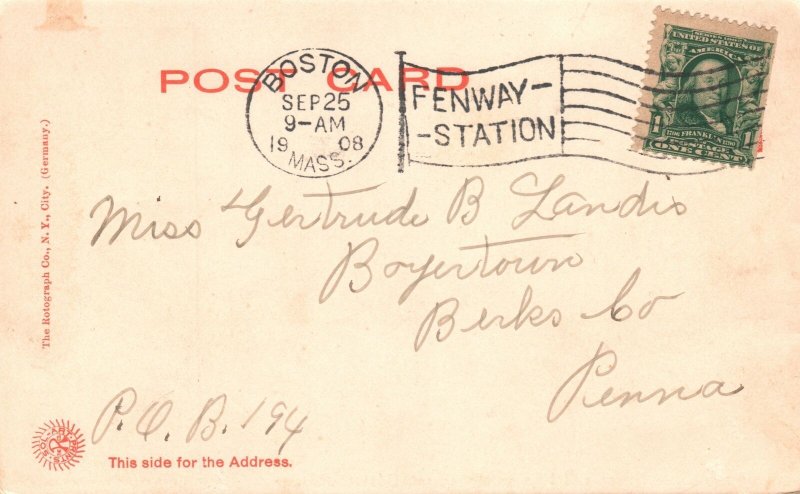 POST CARD
BOSTON
SEP 25
9-AM
1908
MASS.
FENWAY-
-STATION
SERIES 1902
UNITED STATES OF
AMERICA
1706 FRANKLIN 1790
POSTAGE
1 ONE CENT 1
Miss Gertrude B Landis
Boyertown
Berks Co
Penna
P.O.B. 194
This side for the Address.
The Rotograph Co., N. Y., City. (Germany.)